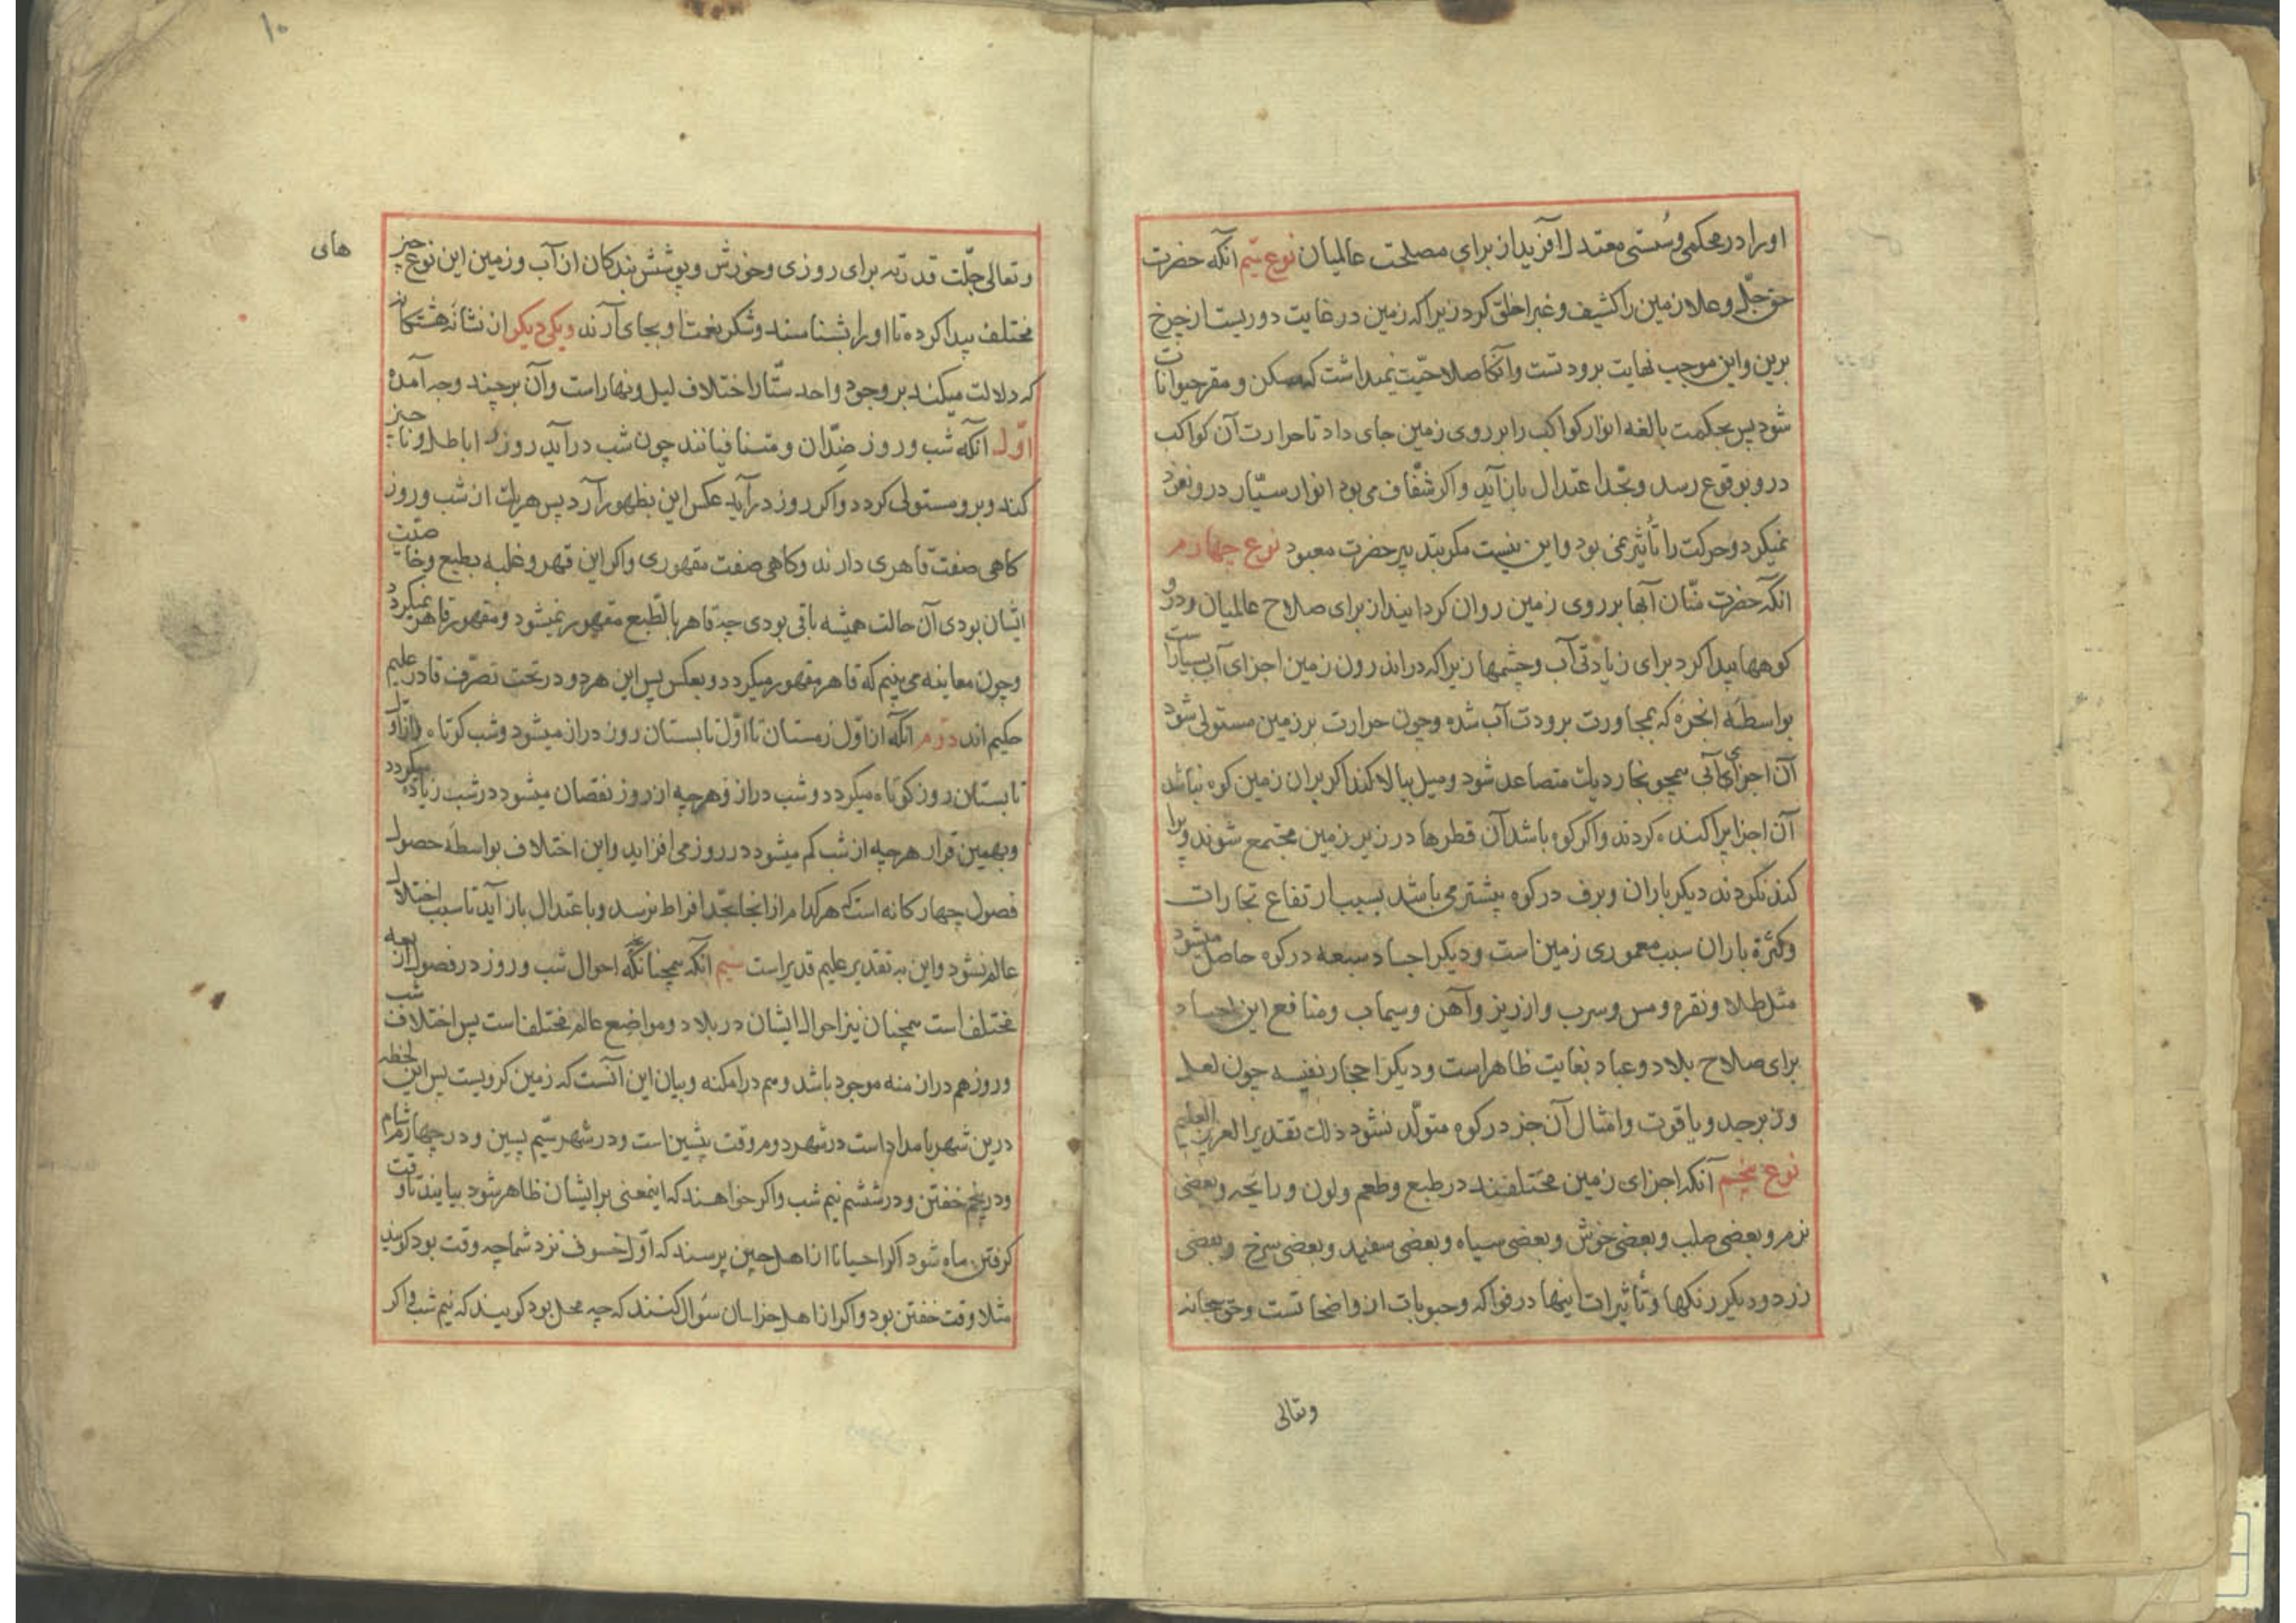 اورا در محکمی و سُستی معتدل آفریداز برای مصلحت عالمیان نوع سیم آنکه حضرت
حق جلّ و علا زمین را کشیف و غبرا خلق کرد زیرا که زمین در غایت دوریست از چرخ
برین و این موجب نهایت برودتست و آنکاه صلاحیّت نمیداشت که مسکن و مقر حیوانات
شود پس بحکمت بالغه انوار کواکب را بر روی زمین جای داد تا حرارت آن کواکب
درو بوقوع رسد و بحّد اعتدال باز آید و اکر شفّاف می بود انوار سیّار درو نفوذ
نمیکرد و حرکت را تأثیر نمی بود و این نیست مکر بتدبیر حضرت معبود نوع چهارم
انکه حضرت منّان آبها بر روی زمین روان کردانید از برای صلاح عالمیان و درو
کوهها پیدا کرد برای زیادتی آب و چشمها زیرا که در اندرون زمین اجزای آبی بسیارست
بواسطهٔ ابخره که بمجاورت برودت آب شده و چون حرارت بر زمین مستولی شود
آن اجزای آبی همچو بخار دیك متصاعد شود و میل ببالا کند اکر بران زمین کوه نباشد
آن اجزا پراکنده کردند و اکر کوه باشد آن قطرها در زیر زمین مجتمع شوند و پرا
کنده نکردند دیکر باران و برف در کوه بیشتر می باشد بسبب ارتفاع بخارات
و کثرة باران سبب معموری زمین است و دیکر اجساد سبعه در کوه حاصل میشود
مثل طلا و نقره و مس و سرب و ارزیز و آهن و سیماب و منافع این اجساد
برای صلاح بلاد و عباد بغایت ظاهر است و دیکر احجار نفیسه چون لعل
و زبرجد و یاقوت و امثال آن جز در کوه متولّد نشود ذلك تقدیر العزیز العلیم
نوع پنجم آنکه اجزای زمین مختلفند در طبع و طعم و لون و رایحه و بعضی
نرم و بعضی صلب و بعضی خوش و بعضی سیاه و بعضی سفید و بعضی سرخ و بعضی
زرد و دیکر رنکها و تأثیرات اینها در فواکه و حبوبات از واضحاتست و حق سبحانه
وتعالی
۱۰
های
و تعالی جلّت قدرته برای روزی و خورش و پوشش بندکان از آب و زمین این نوع چیز
مختلف پیدا کرده تا اورا بشناسند و شکر نعمت او بجای آرند و یکی دیکر از نشانه هشتکانه
که دلالت میکند بر وجود واحد ستّار اختلاف لیل و نهار است و آن بر چند وجه آمده
اوّل آنکه شب و روز ضِدّان و متنافیانند چون شب درآید روز را باطل و ناچیز
کند و برو مستولی کردد و اکر روز درآید عکس این بظهور آرد پس هریك از شب و روز
کاهی صفت قاهری دارند و کاهی صفت مقهوری و اکر این قهر و غلبه بطبع و خاصیّت
ایشان بودی آن حالت همیشه باقی بودی چه قاهر بالطّبع مقهور نمیشود و مقهور قاهر نمیکردد
و چون معاینه می بینیم که قاهر مقهور میکردد و بعکس پس این هر دو در تحت تصرّف قادر علیم
حکیم اند دوّم آنکه از اوّل زمستان تا اوّل تابستان روز دراز میشود و شب کوتاه و از اوّل
تابستان روز کوتاه میکردد و شب دراز و هرچه از روز نقصان میشود در شب زیاده میکردد
و بهمین قرار هرچه از شب کم میشود در روز می افزاید و این اختلاف بواسطهٔ حصول
فصول چهارکانه است که هرکدام از اینجا بحّد افراط نرسد و با عتدال باز آید تا سبب اختلال
عالم نشود و این به تقدیر علیم قدیر است سیم آنکه همچنانکه احوال شب و روز در فصول اربعه
مختلف است همچنان نیز احوال ایشان در بلاد و مواضع عالم مختلف است پس اختلاف شب
و روز هم در ازمنه موجود باشد و هم در امکنه و بیان این آنست که زمین کرویست پس این لحظه
درین شهر بامداد است در شهر دوم وقت پیشین است و در شهر سیّم پسین و در چهارم شام
و در پنجم خفتن و در ششم نیم شب و اکر خواهند که اینمعنی بر ایشان ظاهر شود بیایند تا وقت
کرفتن ماه شود اکر احیانا از اهل چین پرسند که اوّل خسوف نزد شما چه وقت بود کویند
مثلا وقت خفتن بود و اکر از اهل خراسان سؤال کنند که چه محل بود کویند که نیم شب و اکر